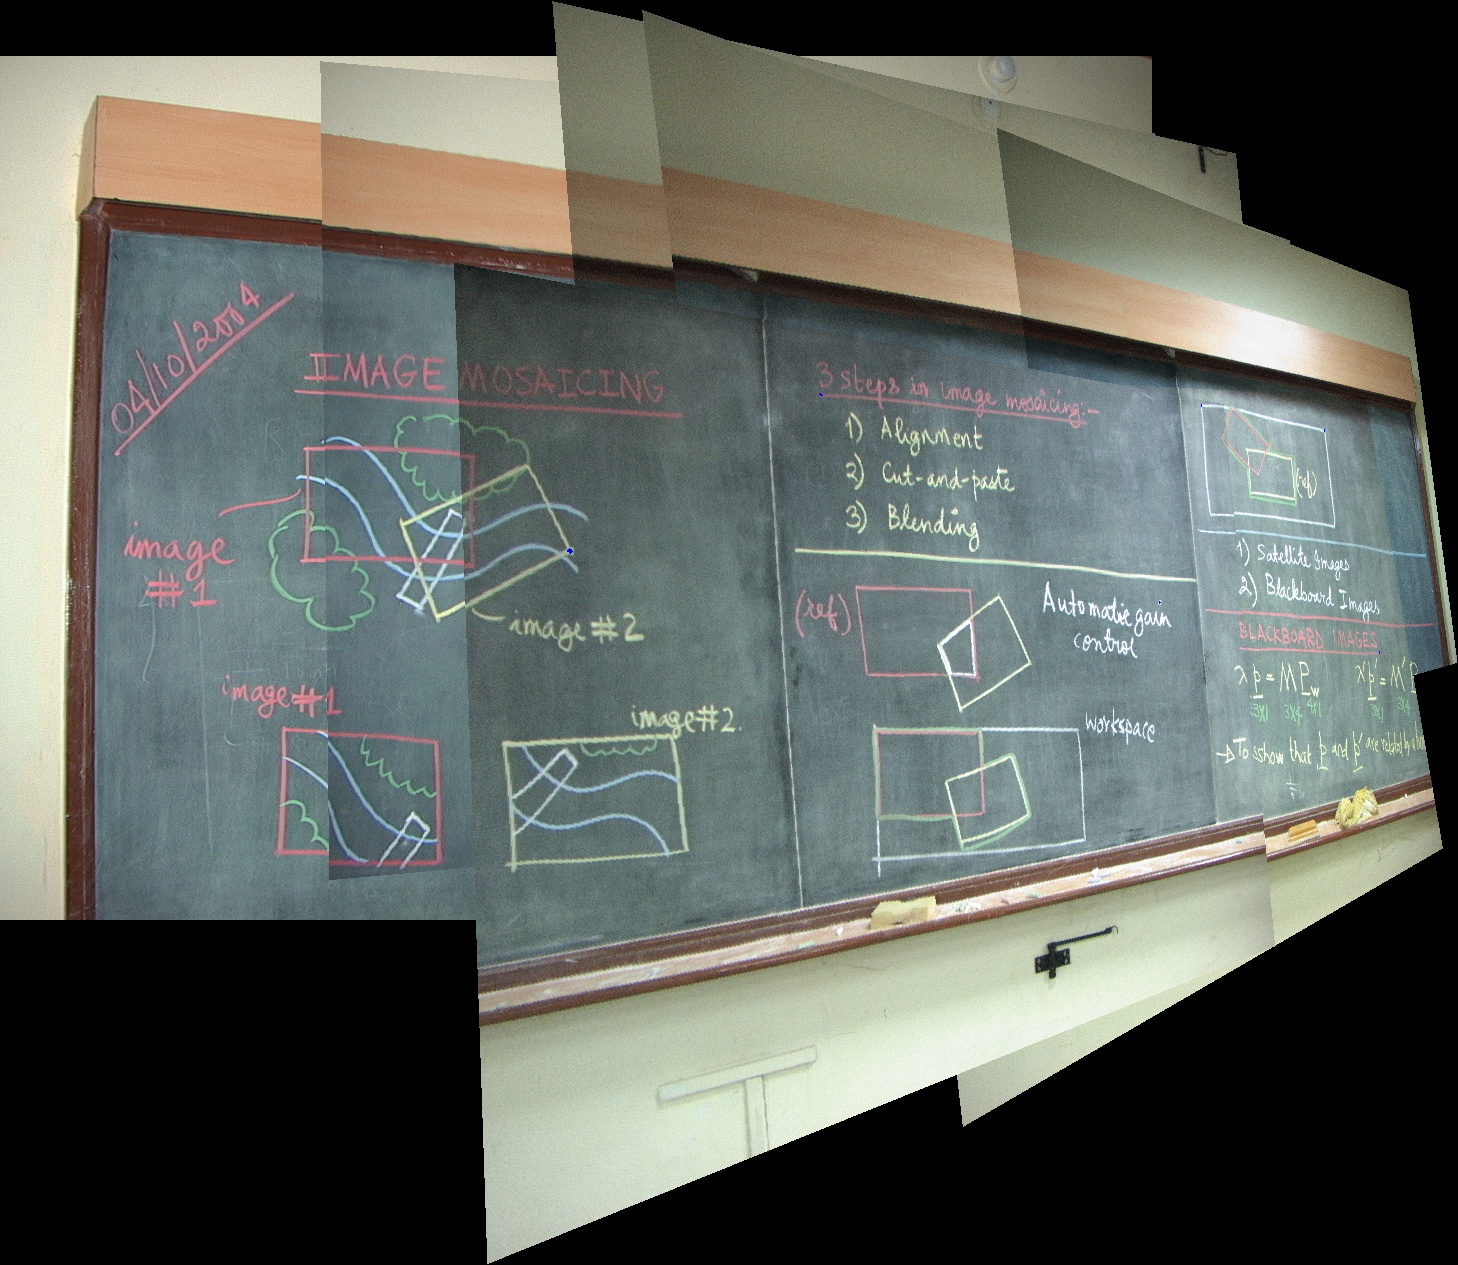 04/10/2004
IMAGE MOSAICING
image
#1
image #2
image #1
image #2.
3 steps in image mosaicing:-
1) Alignment
2) Cut-and-paste
3) Blending
(ref)
Automatic gain
control
workspace
(ref)
1) Satellite Images
2) Blackboard Images
BLACKBOARD IMAGES
λ p = M P_w λ' p' = M' P
3x1 3x4 4x1 3x1 3x4
→ To sshow that p and p' are related by a